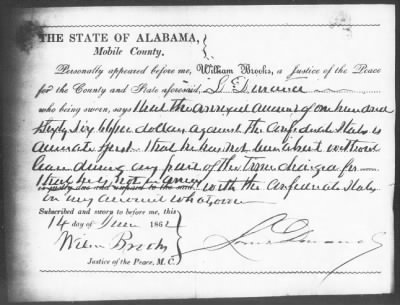 THE STATE OF ALABAMA,
Mobile County.
Personally appeared before me, William Brooks, a Justice of the Peace
for the County and State aforesaid, L Durand
who being sworn, says that the annexed account of one hundred
Sixty Six dollars against the Confederate States is
accurate & just. That he has not been absent without
leave during any part of the time charged for
that he is not in arrear with the Confederate States
on any account whatever
Subscribed and sworn to before me, this
14 day of June 186
Willm Brooks
Justice of the Peace, M. C.